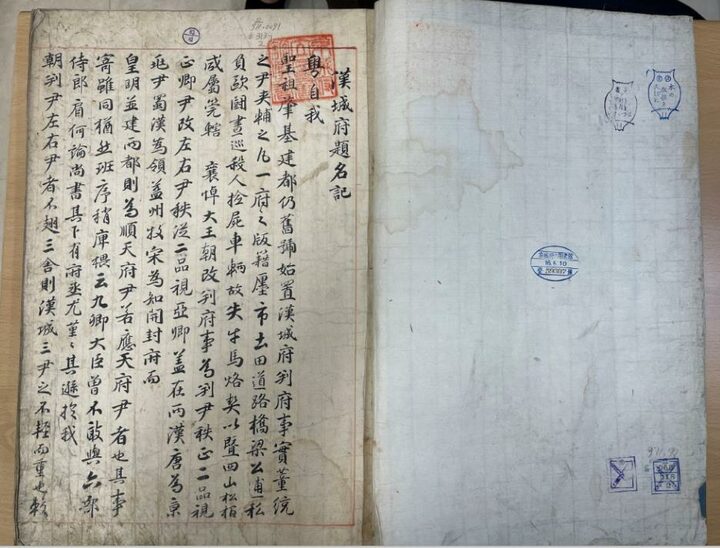 漢城府題名記
粤自我
聖祖肇基建都仍舊號始置漢城府判府事實董統
之尹夾輔之凡一府之版籍廛市土田道路橋梁公逋私
負歐鬪晝巡殺人撿屍車輌故失牛馬烙契以曁四山松栢
咸屬筦轄 襄悼大王朝改判府事為判尹秩正二品視
正卿尹改左右尹秩從二品視亞卿蓋在兩漢唐為京
兆尹蜀漢為領益州牧宋為知開封府而
皇明並建兩都則為順天府尹若應天府尹者也其事
寄雖同猶班序稍庳猥云九卿大臣曾不敢與六部
侍郎肩何論尚書其下有府丞尤堇〻其遜於我
朝判尹左右尹者不翅三舍則漢城三尹之不輕而重也較
16.4.10